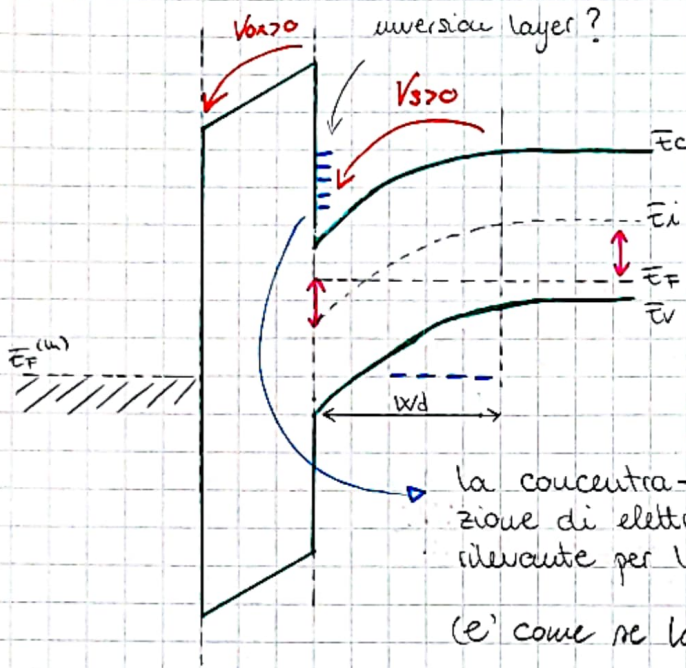 Vox>0
inversion layer?
Vs>0
Ec
Ei
EF
Ev
EF(m)
Wd
la concentra-
zione di elett
rilevante per l
(e' come se l